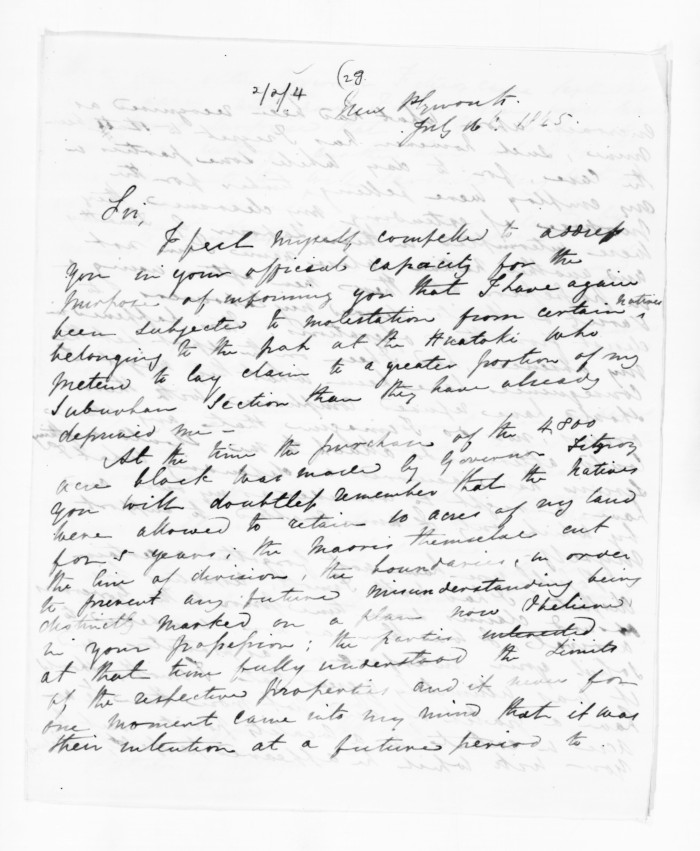 2/2/4
(29.
New Plymouth.
July 16th 1845.
Sir,
I feel myself compelled to address
you in your official capacity for the
purpose of informing you that I have again
been subjected to molestation from certain natives
belonging to the pah at the Huatoki who
pretend to lay claim to a greater portion of my
Suburban Section than they have already
deprived me —
At the time the purchase of the 4,800
acre block was made by Governor Fitzroy
you will doubtless remember that the Natives
were allowed to retain 10 acres of my land
for 5 years; the Maoris themselves cut
the line of division, the boundaries, in order
to prevent any future misunderstanding being
distinctly marked on a plan now I believe
in your possession; the parties interested
at that time fully understood the Limits
of the respective properties and it never for
one moment came into my mind that it was
their intention at a future period to